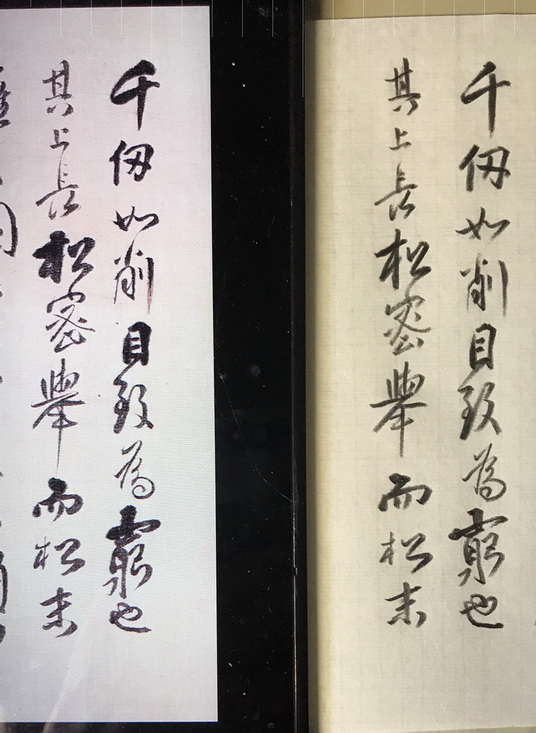 千仭如削目致为窮也
其上長松密舉而松末
千仭如削目致为窮也
其上長松密舉而松末